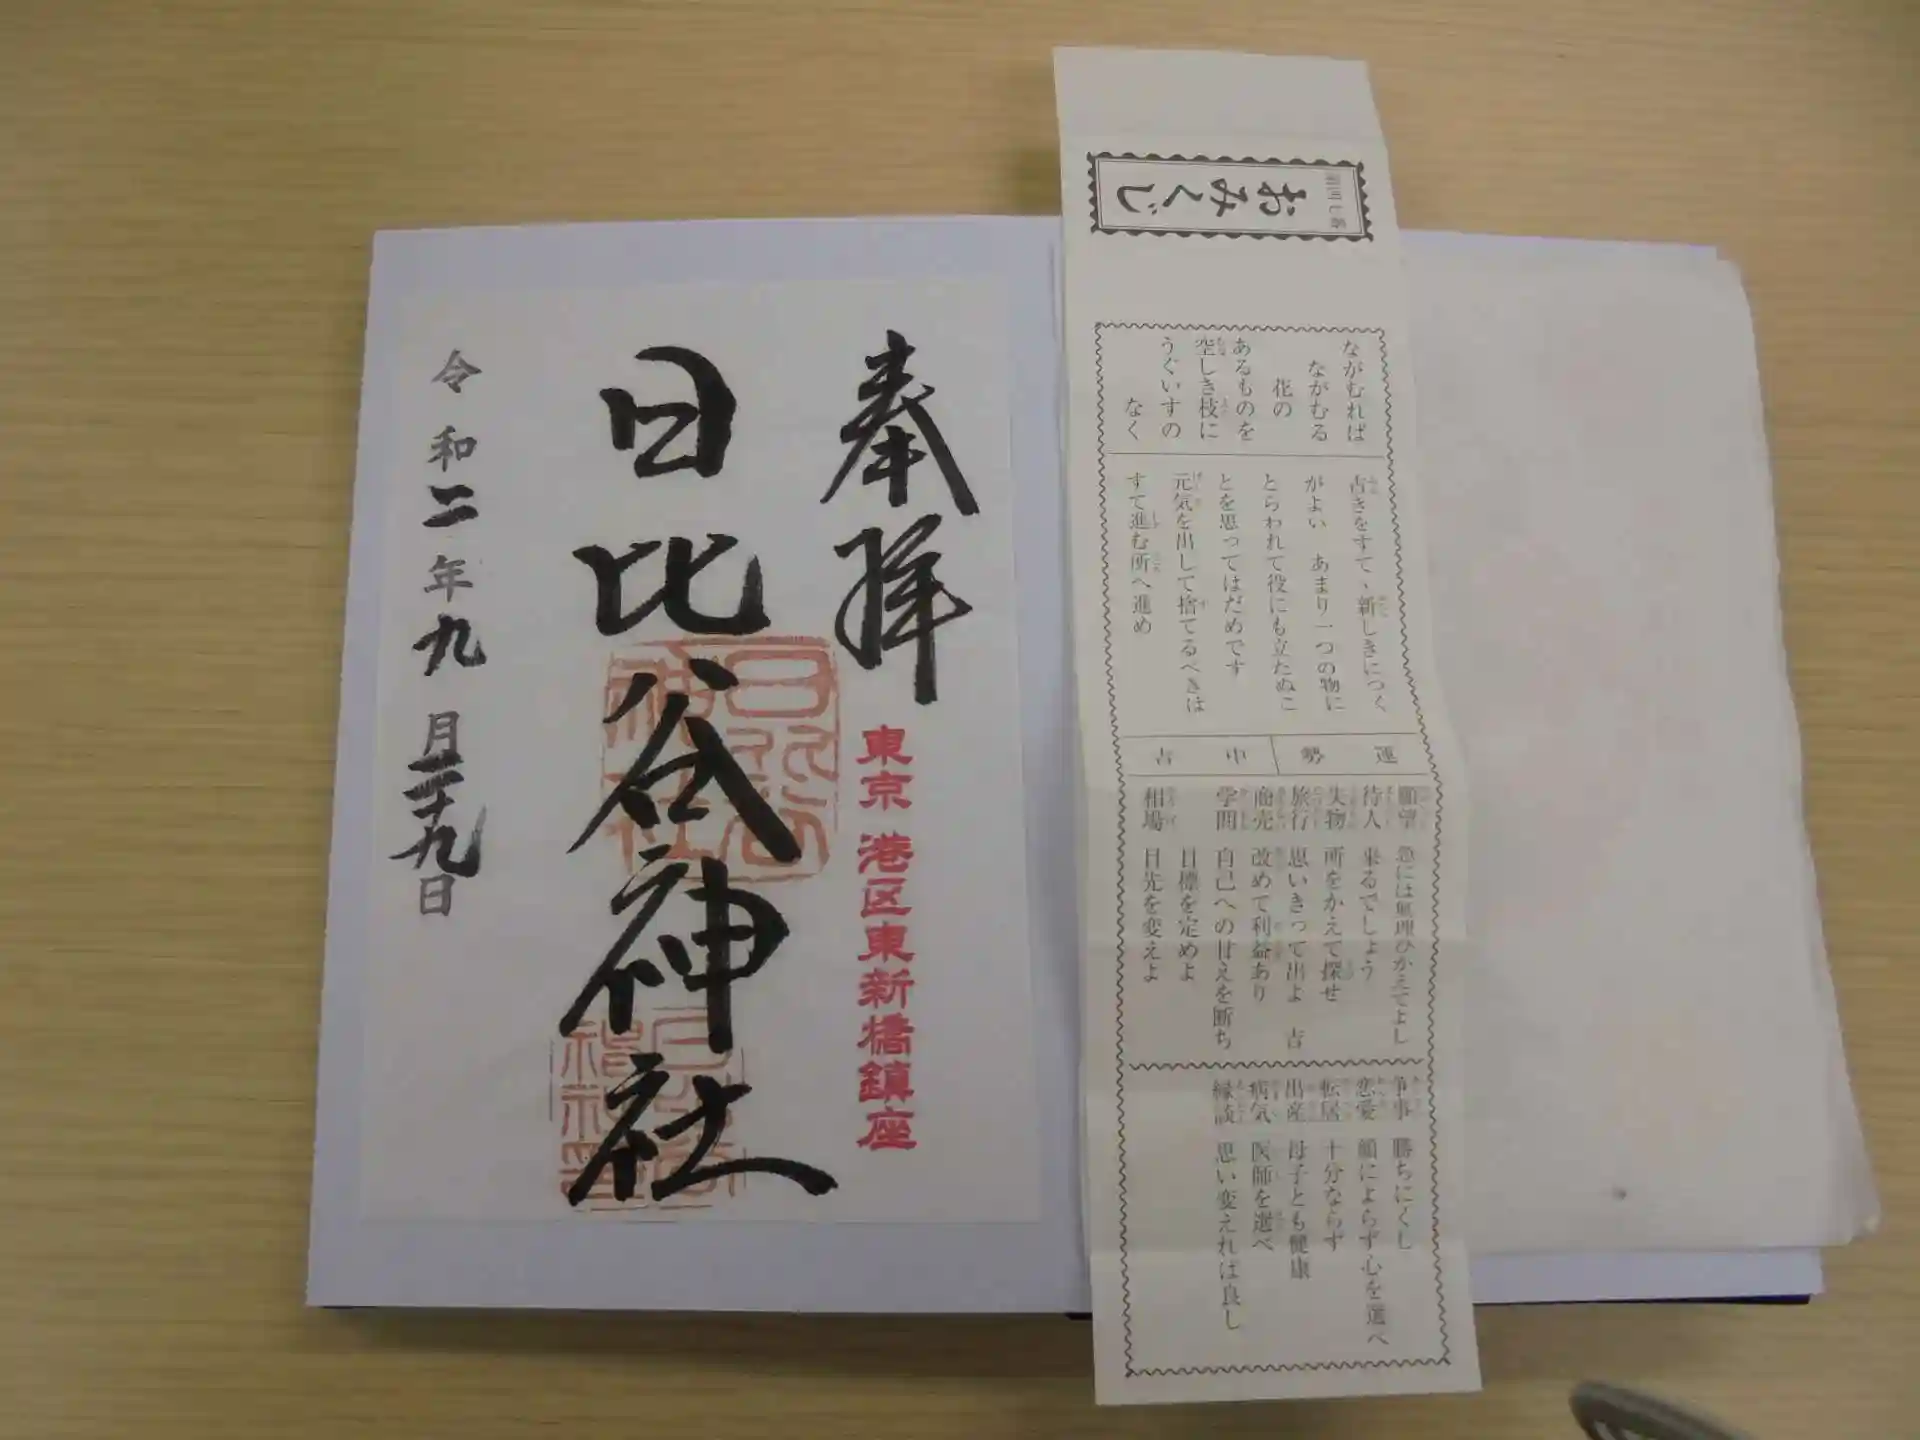 奉拝
東京 港区東新橋鎮座
日比谷神社
令和二年九月二十九日
おみくじ
ながむれば
ながむる
花の
あるものを
空しき枝に
うぐいすの
なく
古きをすて、新しきにつく
がよい あまり一つの物に
とらわれて役にも立たぬこ
とを思ってはだめです
元気を出して捨てるべきは
すて進む所へ進め
運勢 中吉
願望 急には無理ひかえてよし
待人 来るでしょう
失物 所をかえて探せ
旅行 思いきって出よ 吉
商売 改めて利益あり
学問 自己への甘えを断ち
目標を定めよ
相場 目先を変えよ
争事 勝ちにくし
恋愛 顔によらず心を選べ
転居 十分ならず
出産 母子とも健康
病気 医師を選べ
縁談 思い変えれば良し